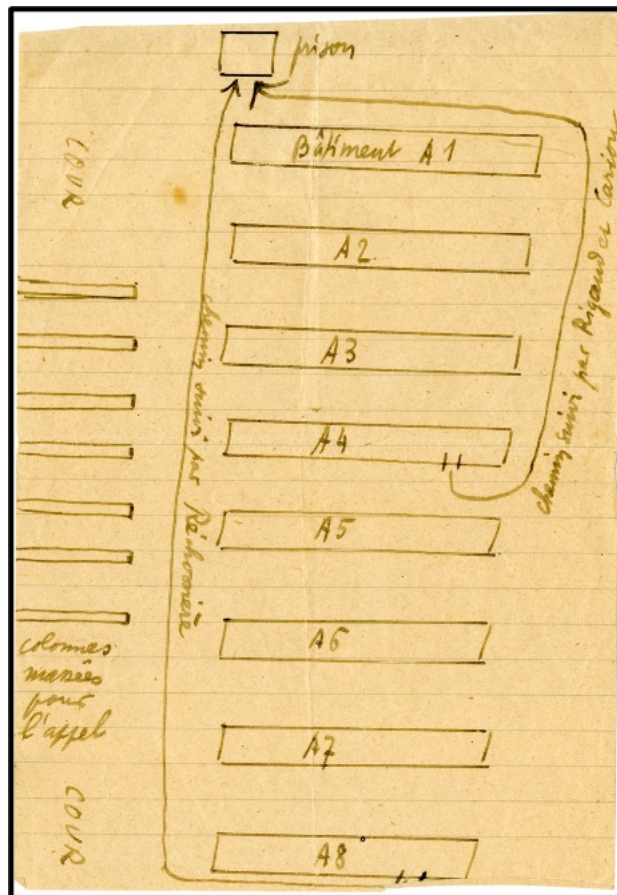 prison
COUR
Bâtiment A1
A2
A3
A4
A5
A6
A7
A8
chemin suivi par Réchossière
chemin suivi par Rigaud et Carion
colonnes
massées
pour
l'appel
COUR